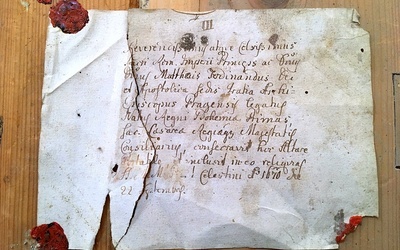 III
Reverendissimus ative Celsissimus
Sacri Rom. Imperii Princeps ac Dnus
Dnus Matthæus Ferdinandus Dei
et Apostolica Sedis Gratia Archi
Episcopus Pragensis Legatus
Natus Regni Bohemiæ Primas,
Sac. Cæsareæ Regiæq Majestatis
Consiliarius, consecravit hoc Altare
inclusit in eo reliquias
Celestini 1670 die
22 Septembris.